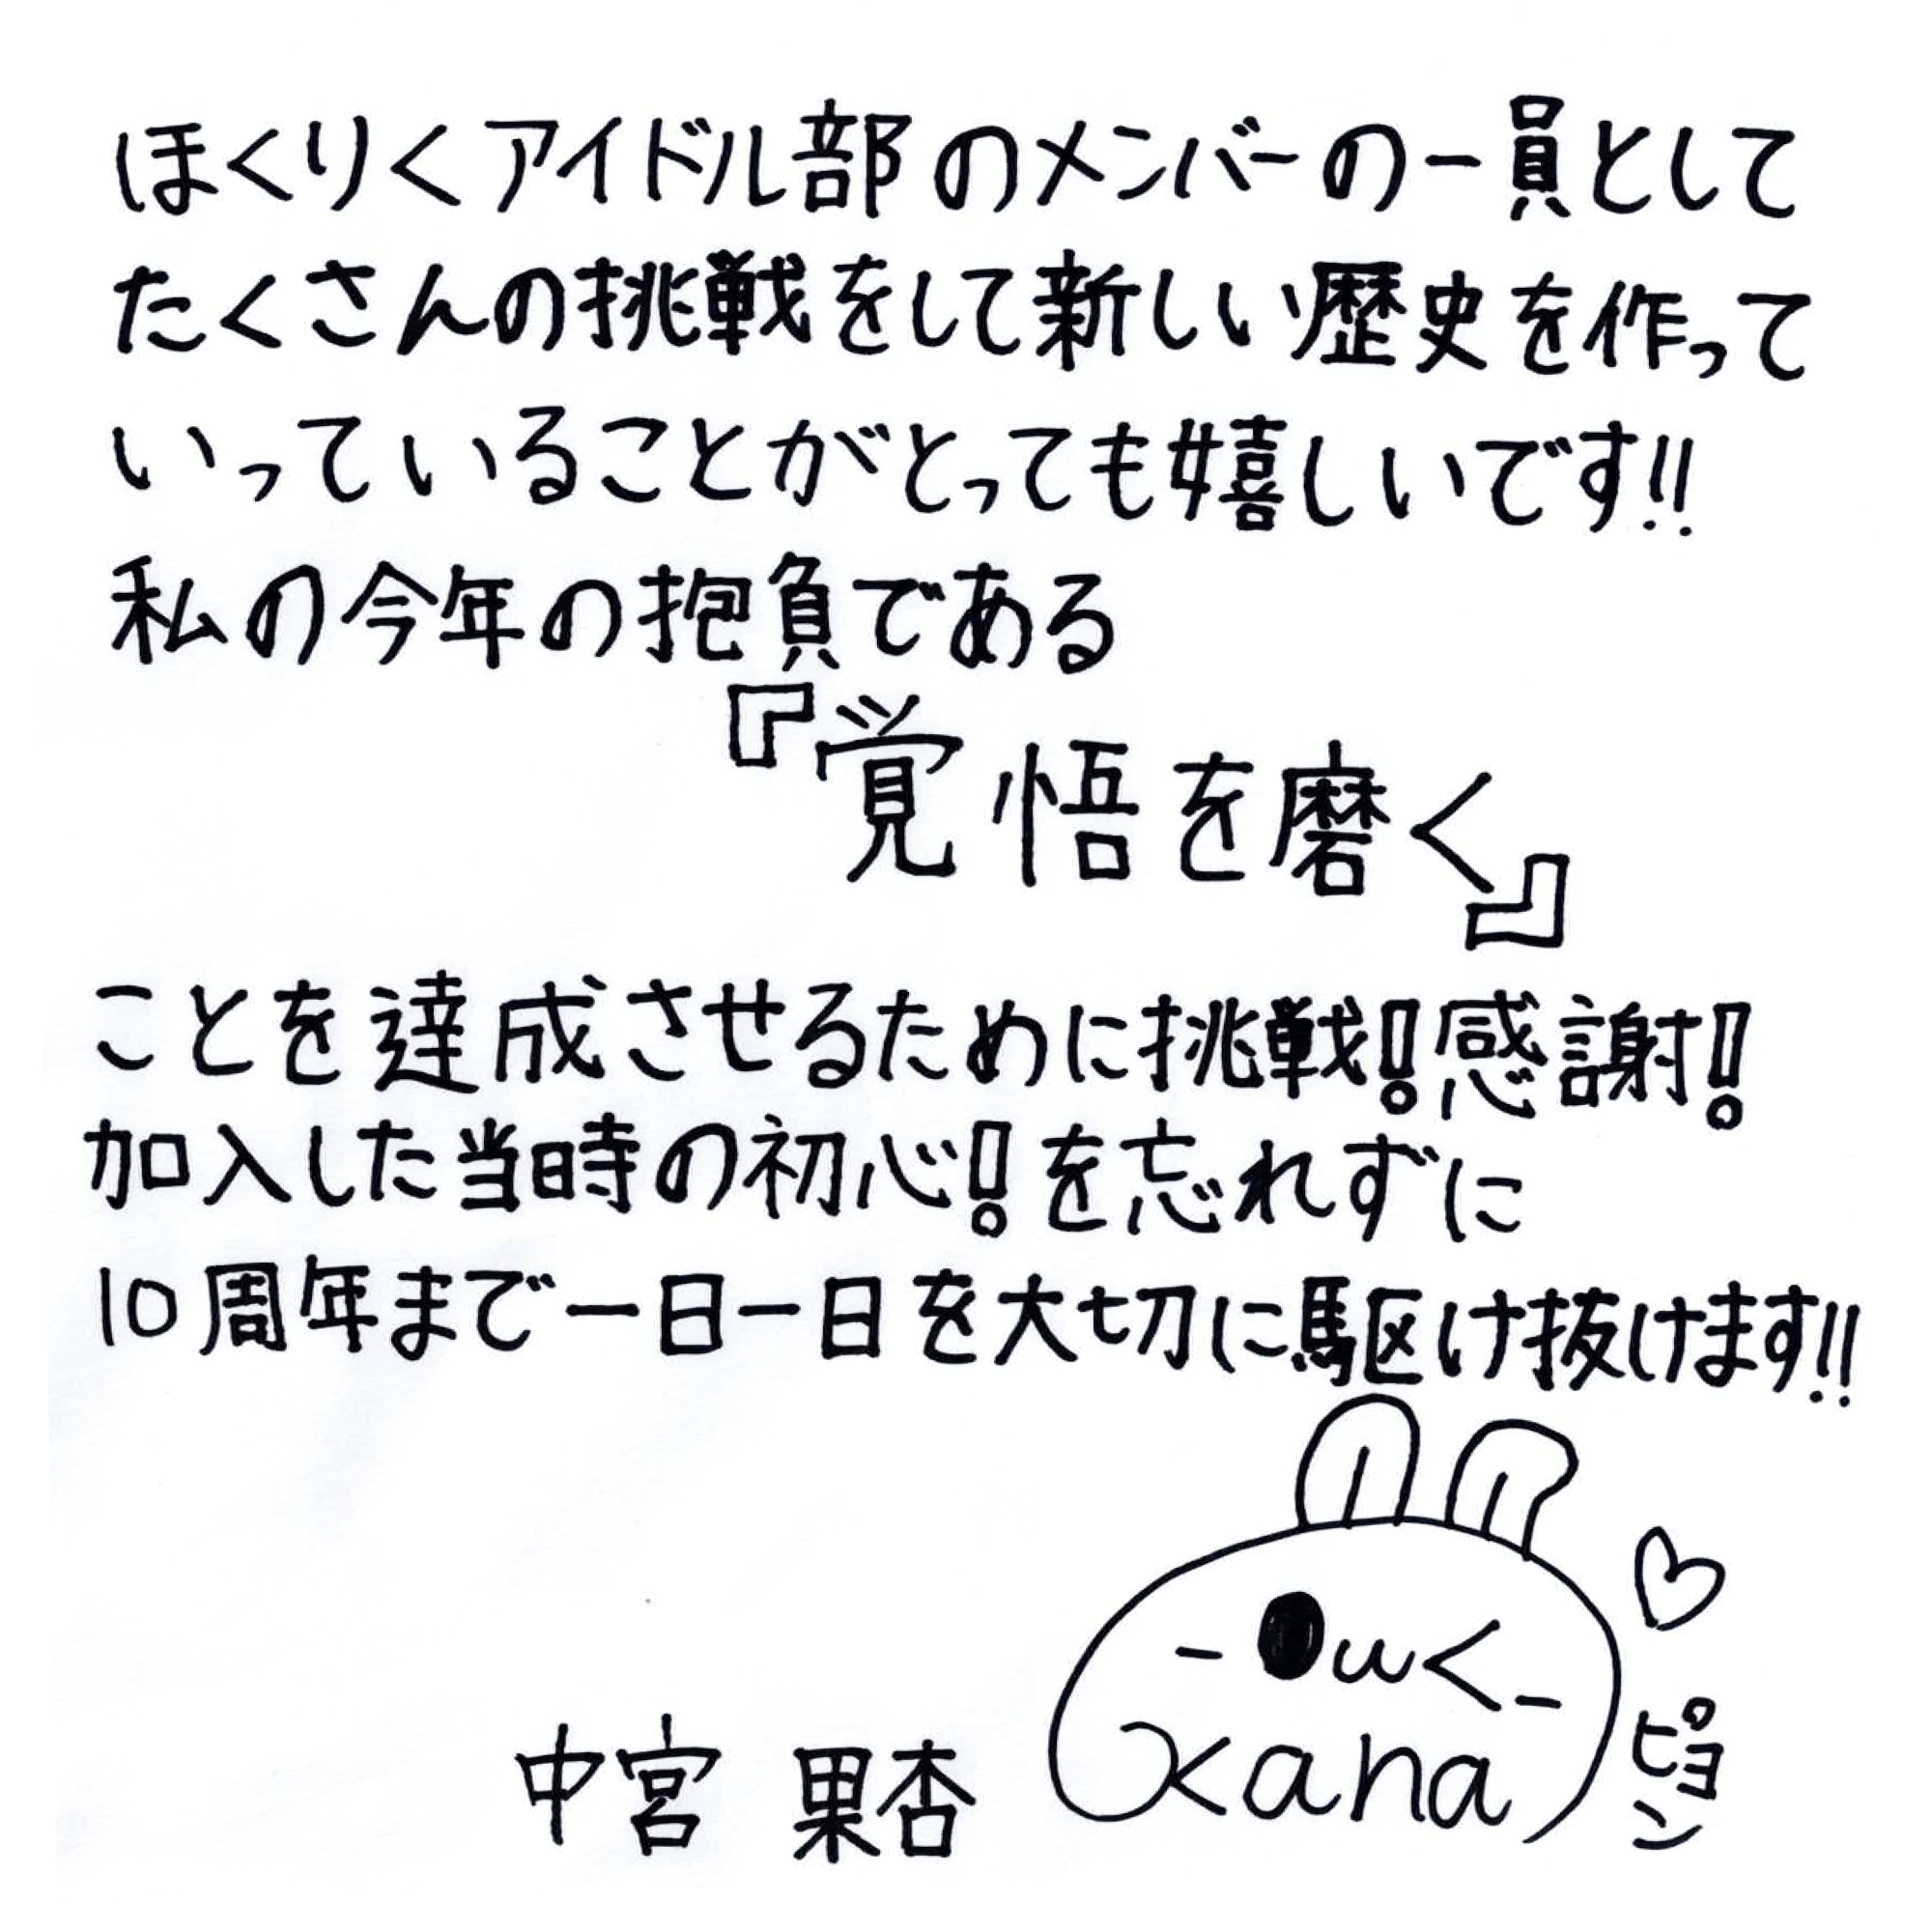 ほくりくアイドル部のメンバーの一員として
たくさんの挑戦をして新しい歴史を作って
いっていることがとっても嬉しいです!!
私の今年の抱負である
『覚悟を磨く』
ことを達成させるために挑戦!感謝!
加入した当時の初心!を忘れずに
10周年まで一日一日を大切に駆け抜けます!!
中宮 果杏
kana
ピョン